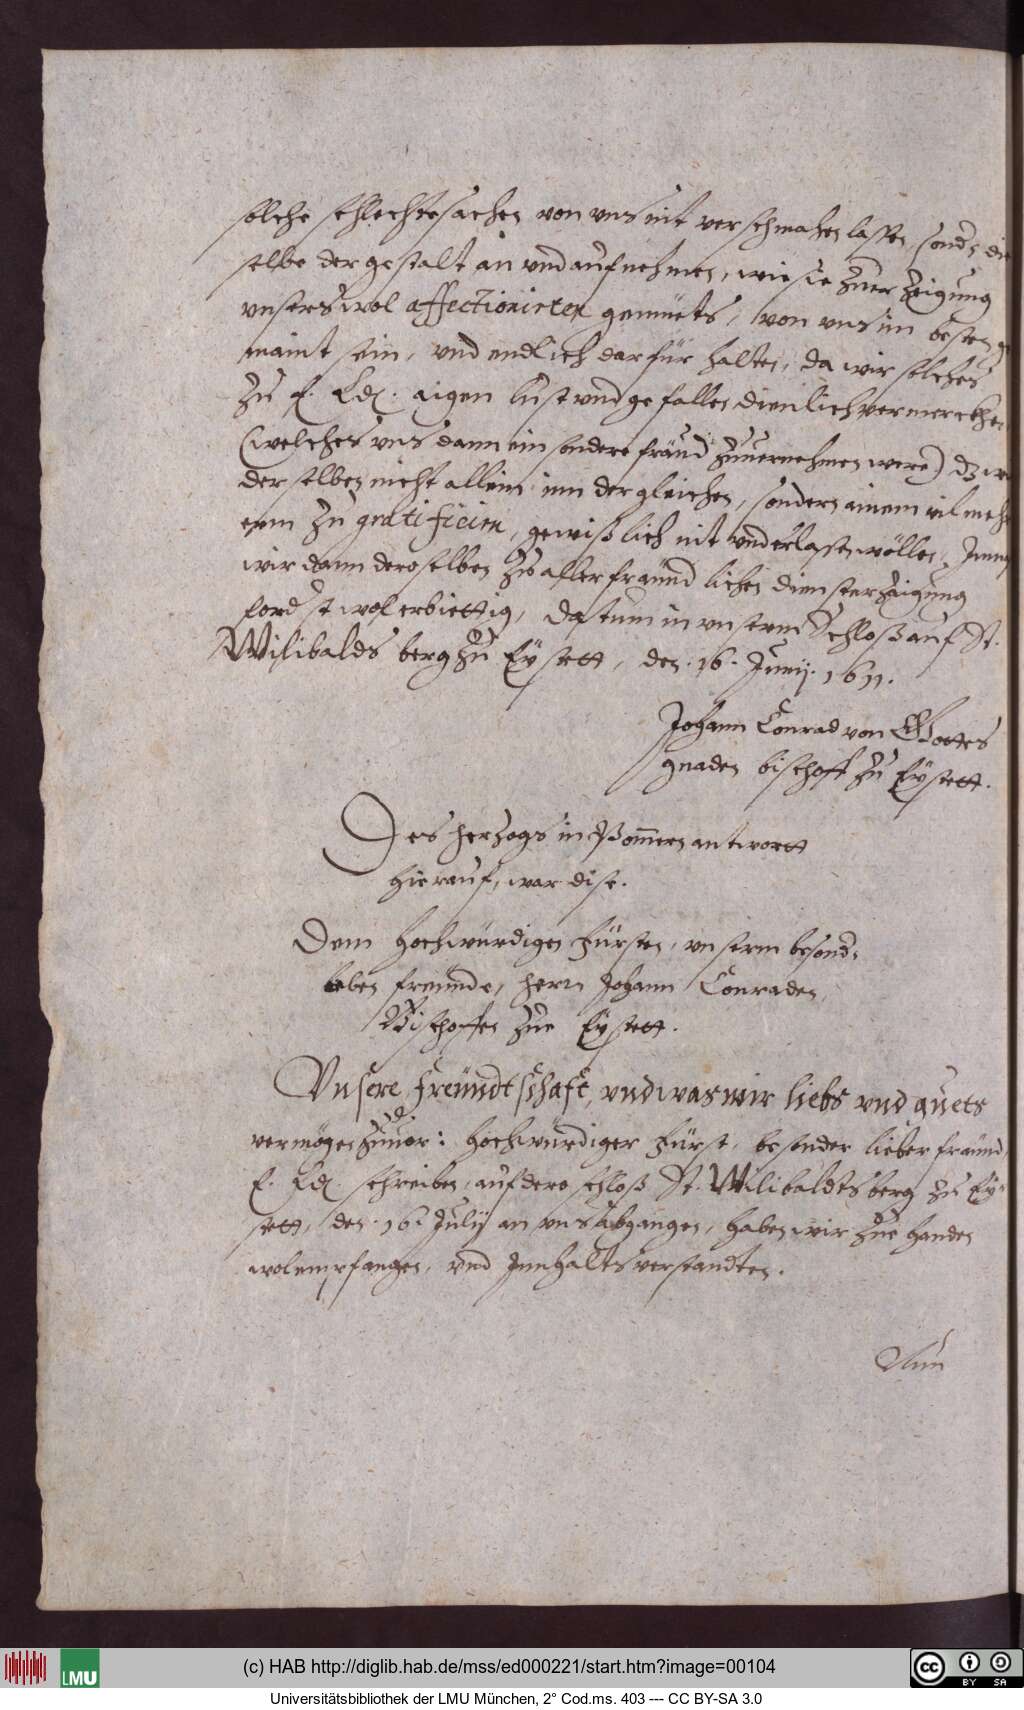 solche schlechte sachen von vns nit verschmahen lassen, sond., die
selbe der gestalt an vnd aufnehmen, wie sie zuer Zeigung
vnsers wol affectionirten gemüets, von vns im besten ge
maint sein, vnd endlich darfür halten, da wir solches
zu E. Ld. aigen lust vnd gefallen dienlich vermerckhen
(welches vns dann ein sondere fräud zuuernehmen were) dz wir
derselben nicht allein inn dergleichen, sondern ainem vil mehr
erm zu gratificirn, gewißlich nit vnderlassen wöllen,
wir dann deroselben zu aller freundlichen diensterzaigung
ford.st wol erbiettig, Datum in vnserm Schloß auf St.
Wilibalds berg zu Eystett, den .16. Junij. 1611.
Johann Conrad von Gottes
gnaden bischoff zu Eystett.
Des herzogs in Pom̄ern antwortt
hierauf, war dise.
Dem hochwürdigen Fürsten, vnserm besond.
lieben freünde, herrn Johann Conraden,
Bischoffen zue Eystett.
Vnsere freündtschaft, vnd was wir liebs vnd guets
vermögen zuuor: Hochwürdiger Fürst, besonder lieber freünd,
E. Ld. schreiben, auf dero schloß St. Wilibaldtsberg zu Ey-
stett, den .16. July an vns abgangen, haben wir zue handen
wol empfangen, vnd Innhalts verstandten.
Nun
(c) HAB http://diglib.hab.de/mss/ed000221/start.htm?image=00104
LMU
BY SA
Universitätsbibliothek der LMU München, 2° Cod.ms. 403 --- CC BY-SA 3.0